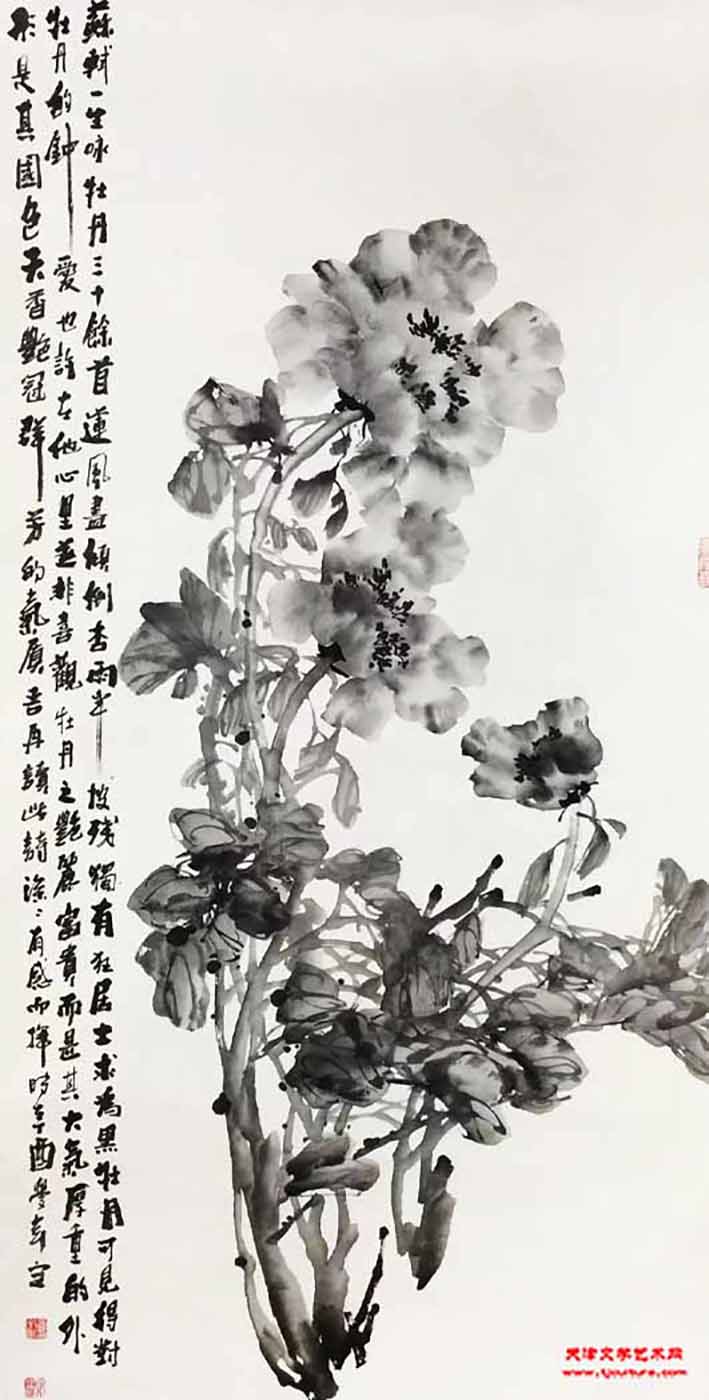 蘇軾一生咏牡丹三十餘首蓮風盡傾倒杏雨半披殘獨有狂居士求為黑牡丹可見得對
牡丹的鍾愛也許在他心里並非喜觀牡丹之艷麗富貴而是其大氣厚重的外
形是其國色天香艷冠群芳的氣質吾再讀此詩深:有感而揮時辛酉
天津文学艺术网